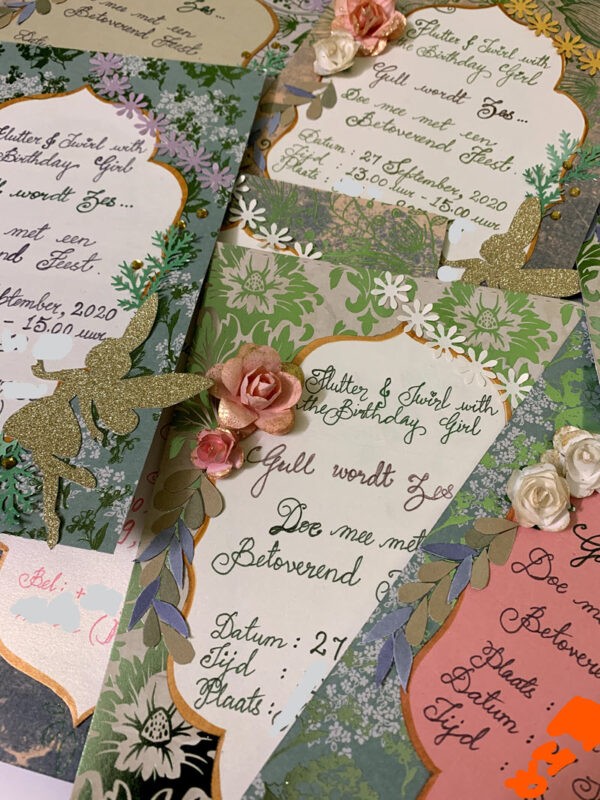 Doe mee met een
Betoverend Feest.
Flutter & Twirl with
the Birthday Girl
Gull wordt Zes...
Doe mee met een
Betoverend Feest.
Datum : 27 September, 2020
Tijd : 13.00 uur - 15.00 uur
Plaats :
Flutter & Twirl with
Birthday Girl
wordt Zes...
met een
Feest.
2020
- 15.00 uur
Flutter & Twirl with
the Birthday Girl
Gull wordt Zes
Doe mee met
Betoverend
Datum : 27
Tijd :
Plaats :
Bel : +
Doe
Plaats :
Datum :
Tijd :